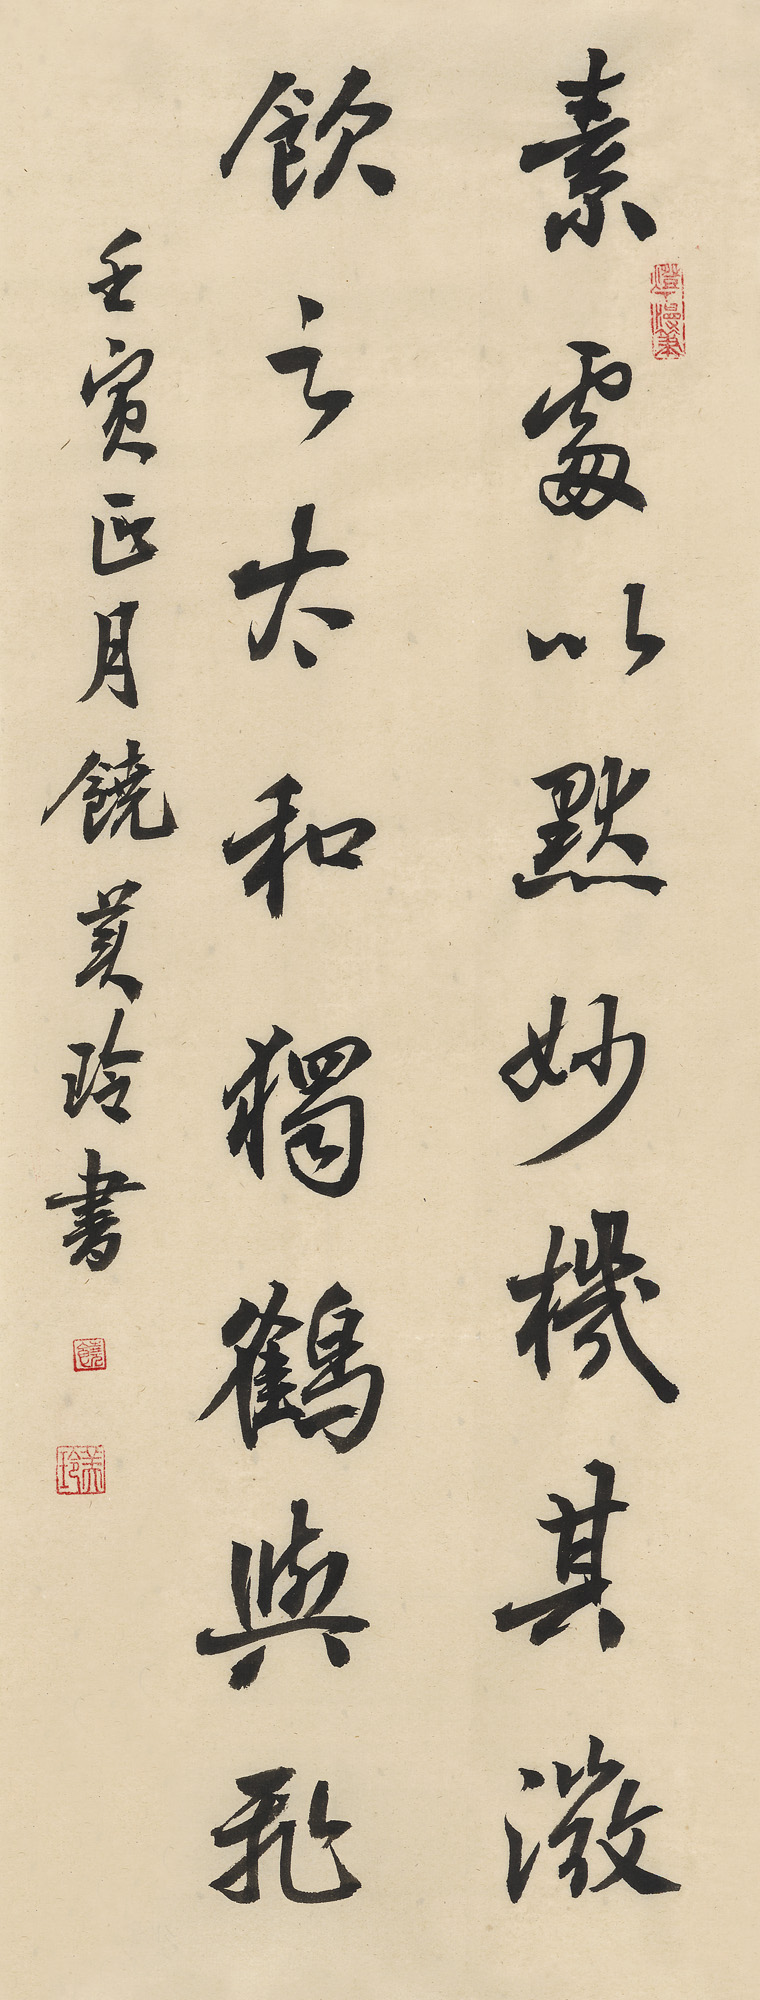 素處以默妙機其微
飲之太和獨鶴與飛
壬寅正月饒美玲書
饒
美玲